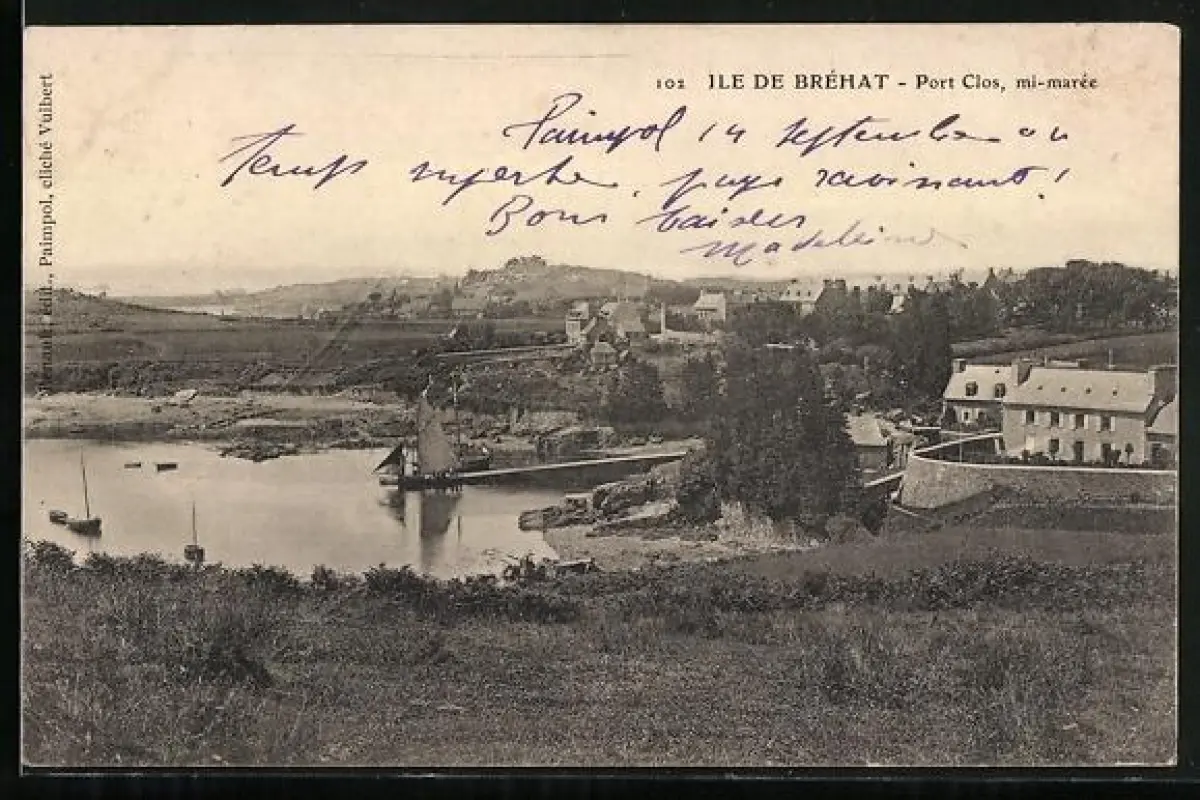 102 ILE DE BRÉHAT - Port Clos, mi-marée
Paimpol 14 septembre 04
Temps superbe, pays ravissant!
Bons baisers
Madeleine
édit., Paimpol, cliché Vuibert